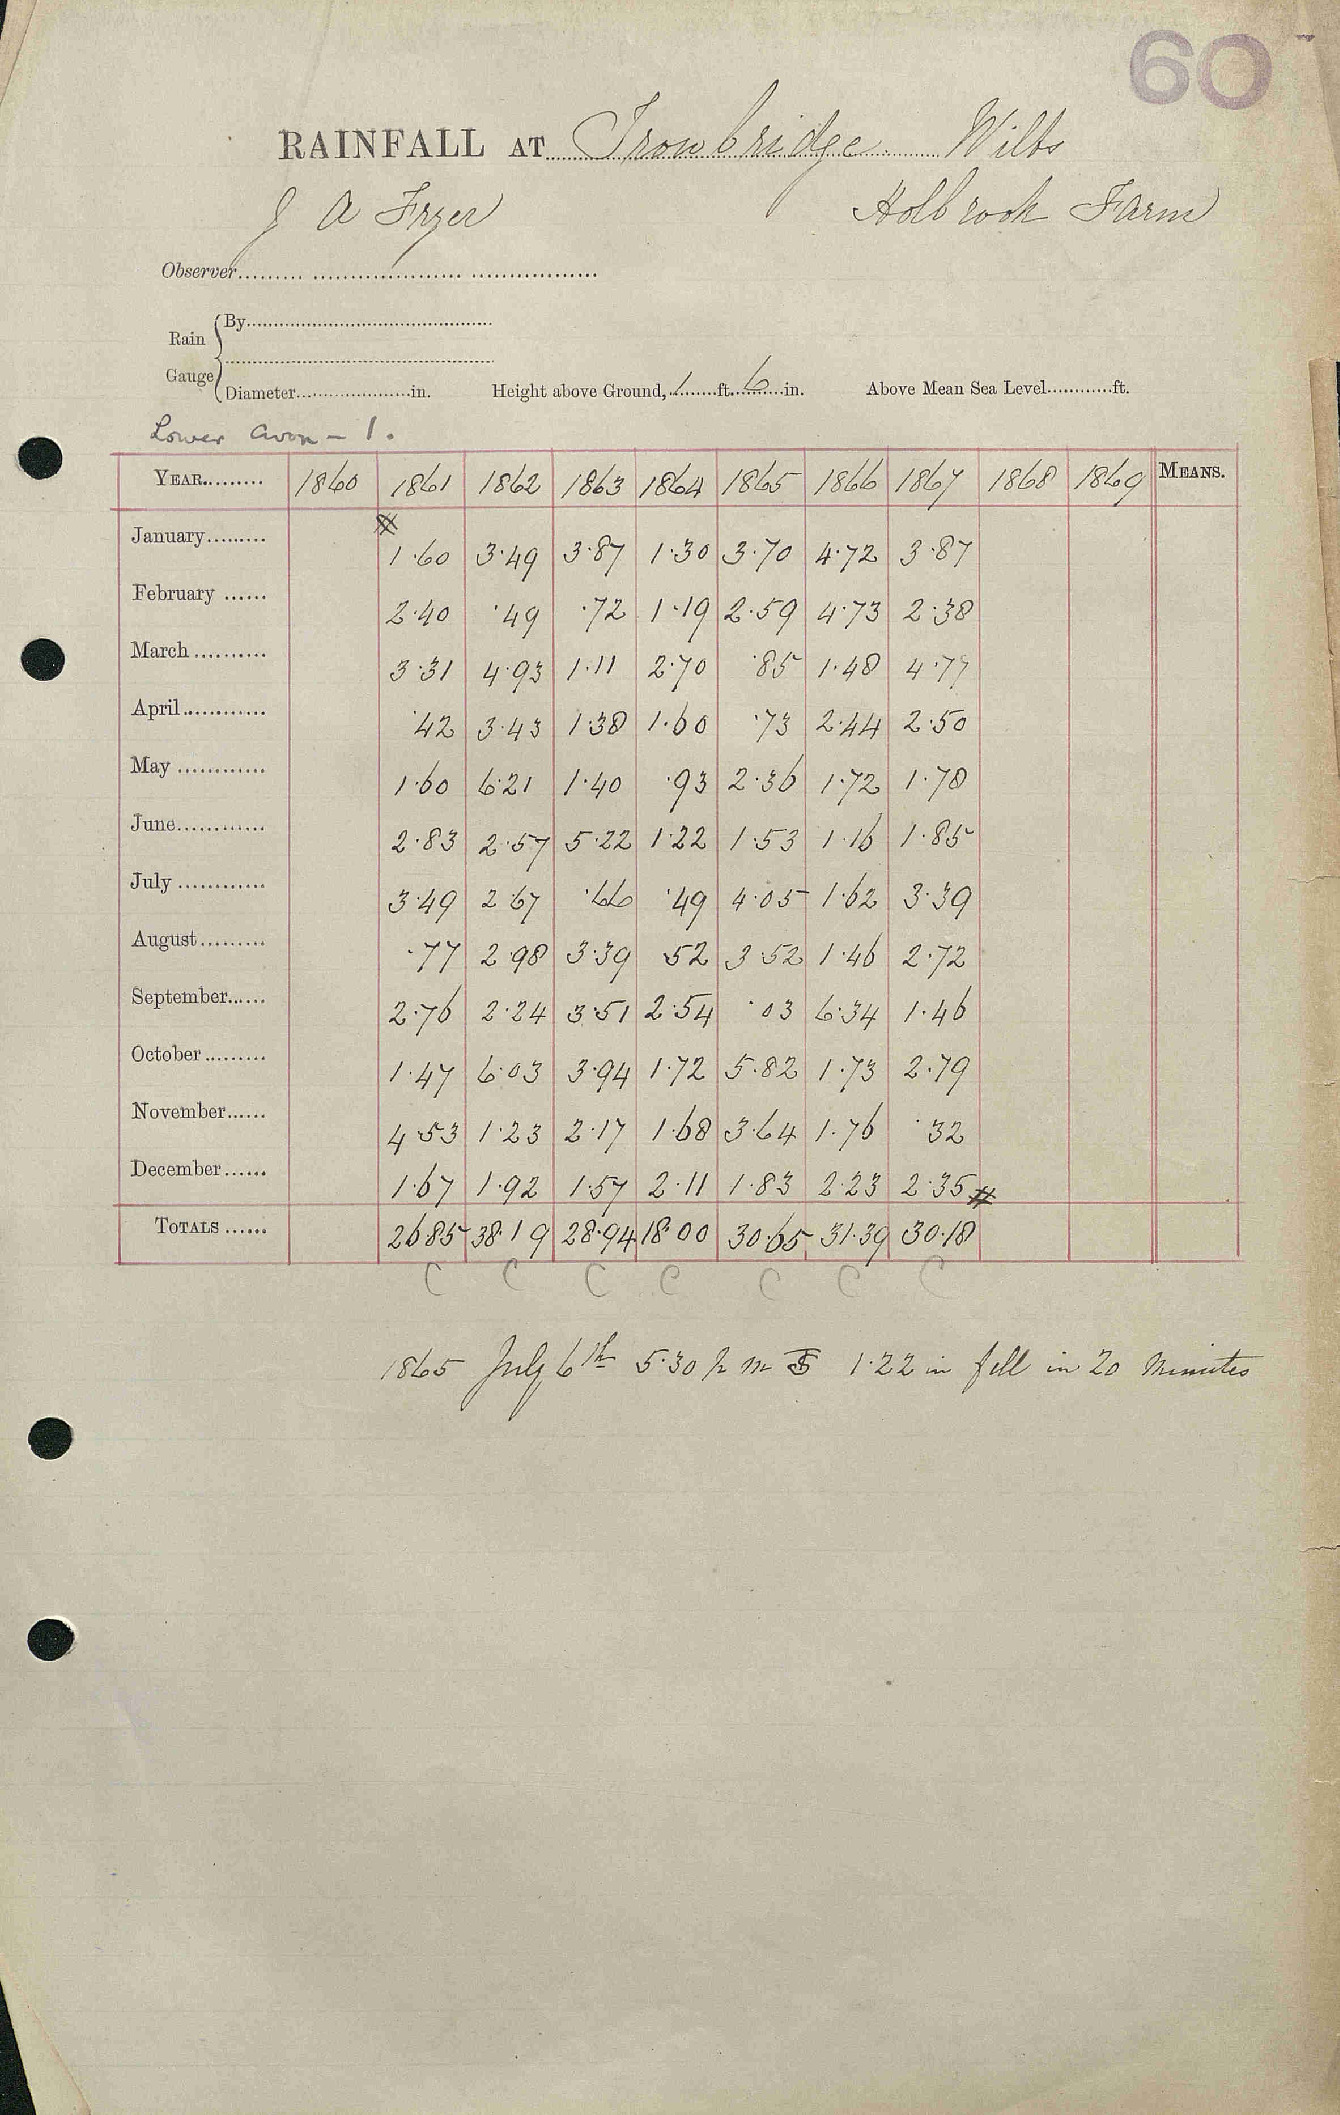 60
RAINFALL AT Trowbridge. Wilts
J A Fryer Holbrook Farm
Observer
Rain Gauge { By
Diameter in. Height above Ground, 1 ft. 6 in. Above Mean Sea Level ft.
Lower Avon - 1.
YEAR 1860 1861 1862 1863 1864 1865 1866 1867 1868 1869 MEANS.
January 1.60 3.49 3.87 1.30 3.70 4.72 3.87
February 2.40 .49 .72 1.19 2.59 4.73 2.38
March 3.31 4.93 1.11 2.70 .85 1.48 4.77
April .42 3.43 1.38 1.60 .73 2.44 2.50
May 1.60 6.21 1.40 .93 2.36 1.72 1.78
June 2.83 2.57 5.22 1.22 1.53 1.16 1.85
July 3.49 2.67 .66 .49 4.05 1.62 3.39
August .77 2.98 3.39 .52 3.52 1.46 2.72
September 2.76 2.24 3.51 2.54 .03 6.34 1.46
October 1.47 6.03 3.94 1.72 5.82 1.73 2.79
November 4.53 1.23 2.17 1.68 3.64 1.76 .32
December 1.67 1.92 1.57 2.11 1.83 2.23 2.35
TOTALS 26.85 38.19 28.94 18.00 30.65 31.39 30.18
C C C C C C C
1865 July 6th 5.30 p m 1.22 in fell in 20 minutes